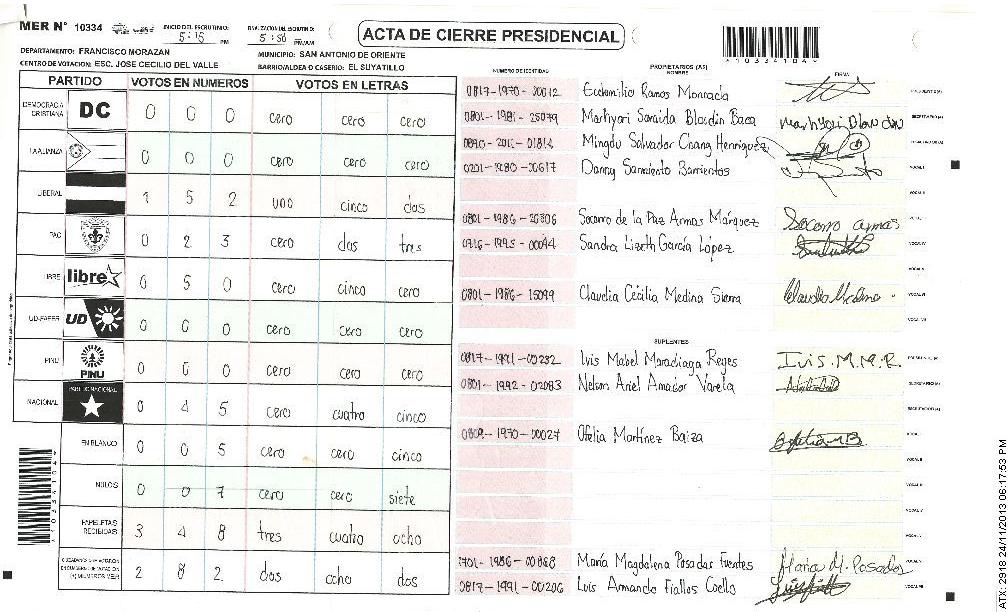 MER N° 10334
INICIO DEL ESCRUTINIO: 5:15 PM
FINALIZACION DEL ESCRUTINIO: 5:50 PM/AM
ACTA DE CIERRE PRESIDENCIAL
DEPARTAMENTO: FRANCISCO MORAZAN
MUNICIPIO: SAN ANTONIO DE ORIENTE
CENTRO DE VOTACION: ESC. JOSE CECILIO DEL VALLE
BARRIO/ALDEA O CASERIO: EL SUYATILLO
PARTIDO VOTOS EN NUMEROS VOTOS EN LETRAS
DEMOCRACIA CRISTIANA DC 0 0 0 cero cero cero
LA ALIANZA 0 0 0 cero cero cero
LIBERAL 1 5 2 uno cinco dos
PAC 0 2 3 cero dos tres
LIBRE libre 0 5 0 cero cinco cero
UD-FAPER UD 0 0 0 cero cero cero
PINU PINU 0 0 0 cero cero cero
NACIONAL PARTIDO NACIONAL 0 4 5 cero cuatro cinco
EN BLANCO 0 0 5 cero cero cinco
NULOS 0 0 7 cero cero siete
PAPELETAS RECIBIDAS 3 4 8 tres cuatro ocho
2 8 2 dos ocho dos
NUMERO DE IDENTIDAD
PROPIETARIOS (AS)
NOMBRE
FIRMA
0817-1970-00012 Ramos Moncada
0801-1981-25079 Marhyori Saraida Blandin Baca
Mingdu Salvador Chang Henriquez
Danny Sarmiento Barrientos
Socorro de la Paz Armas Márquez Socorro armas
Sandra Lizeth García López
0801-1986-15099 Claudia Cecilia Medina Sierra
SUPLENTES
0817-1991-00232 Ivis Mabel Maradiaga Reyes Ivis.M.M.R.
0801-1992-02083 Nelson Ariel Amador Varela
Ofelia Martínez Baiza
María Magdalena Posadas Fuentes Maria M. Posadas
0817-1991-00206 Luis Armando Fiallos Coello
103341049
ATX-2918 24/11/2013 06:17:53 PM